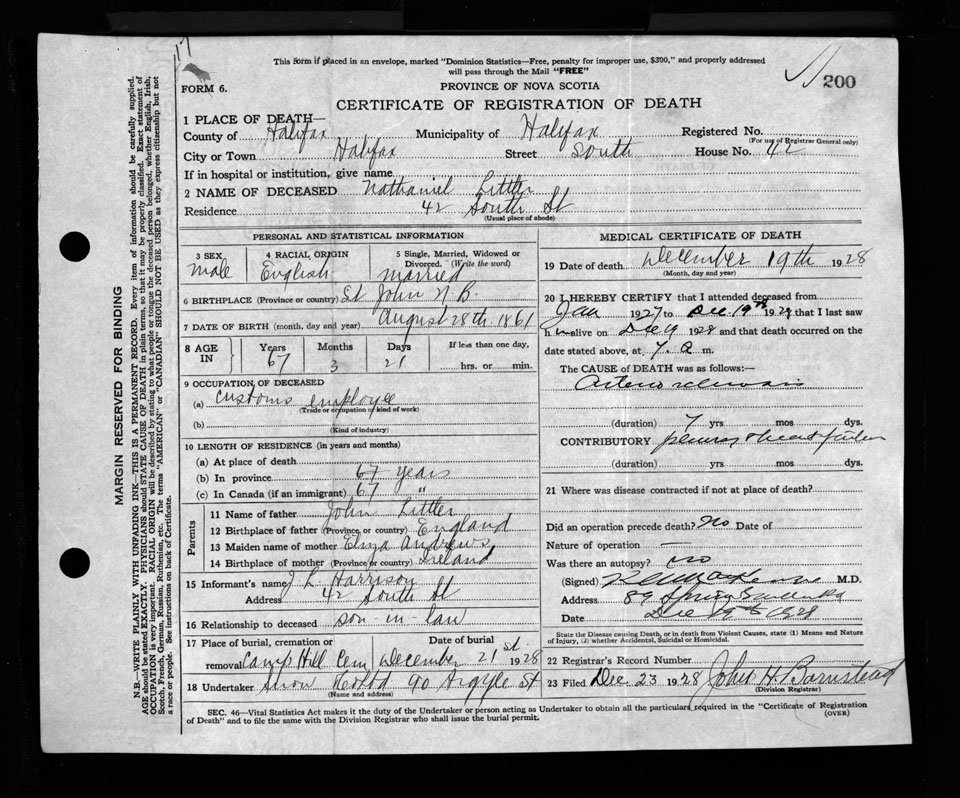 This form if placed in an envelope, marked "Dominion Statistics—Free, penalty for improper use, $300," and properly addressed
will pass through the Mail "FREE"
200
FORM 6.
PROVINCE OF NOVA SCOTIA
CERTIFICATE OF REGISTRATION OF DEATH
1 PLACE OF DEATH—
County of Halifax Municipality of Halifax Registered No.
(For use of Registrar General only)
City or Town Halifax Street South House No. 42
If in hospital or institution, give name
2 NAME OF DECEASED Nathaniel Littler
Residence 42 South St
(Usual place of abode)
PERSONAL AND STATISTICAL INFORMATION
3 SEX Male
4 RACIAL ORIGIN English
5 Single, Married, Widowed or
Divorced. (Write the word)
Married
6 BIRTHPLACE (Province or country) St John N B.
7 DATE OF BIRTH (month, day and year) August 28th 1861
8 AGE IN Years 67 Months 3 Days 21 If less than one day, hrs. or min.
9 OCCUPATION OF DECEASED
(a) Customs employee
(Trade or occupation or kind of work)
(b)
(Kind of industry)
10 LENGTH OF RESIDENCE (in years and months)
(a) At place of death
(b) In province 67 years
(c) In Canada (if an immigrant) 67 "
Parents
11 Name of father John Littler
12 Birthplace of father (Province or country) England
13 Maiden name of mother Eliza Andrews
14 Birthplace of mother (Province or country) Ireland
15 Informant's name J L Harrison
Address 42 South St
16 Relationship to deceased son-in-law
17 Place of burial, cremation or Date of burial
removal Camp Hill Cem December 21st 1928
18 Undertaker Snow 90 Argyle St
(Name and address)
MEDICAL CERTIFICATE OF DEATH
19 Date of death December 19th 1928
(Month, day and year)
20 I HEREBY CERTIFY that I attended deceased from
Jan 1927 to Dec 19th 1928 that I last saw
him alive on Dec 9 1928 and that death occurred on the
date stated above, at 7. a m.
The CAUSE of DEATH was as follows:—
(duration) 7 yrs mos dys.
CONTRIBUTORY
(duration) yrs mos dys.
21 Where was disease contracted if not at place of death?
Did an operation precede death? No Date of
Nature of operation —
Was there an autopsy? no
(Signed) M.D.
Address 89 Spring Garden Rd
Date Dec 19th 1928
State the Disease causing Death, or in death from Violent Causes, state (1) Means and Nature
of Injury, (2) whether Accidental, Suicidal or Homicidal.
22 Registrar's Record Number
23 Filed Dec 23 1928 John H Barnstead
(Division Registrar)
SEC. 46—Vital Statistics Act makes it the duty of the Undertaker or person acting as Undertaker to obtain all the particulars required in the "Certificate of Registration
of Death" and to file the same with the Division Registrar who shall issue the burial permit.
(OVER)
MARGIN RESERVED FOR BINDING
N.B.—WRITE PLAINLY WITH UNFADING INK—THIS IS A PERMANENT RECORD. Every item of information should be carefully supplied.
AGE should be stated EXACTLY. PHYSICIANS should STATE CAUSE OF DEATH in plain terms, so that it may be properly classified. Exact statement of
OCCUPATION is very important. RACIAL ORIGIN will be described by stating to what people or tongue the deceased person belonged, whether English, Irish,
Scotch, French, German, Russian, Ruthenian, etc. The terms "AMERICAN" or "CANADIAN" SHOULD NOT BE USED as they express citizenship but not
a race or people. See instructions on back of Certificate.